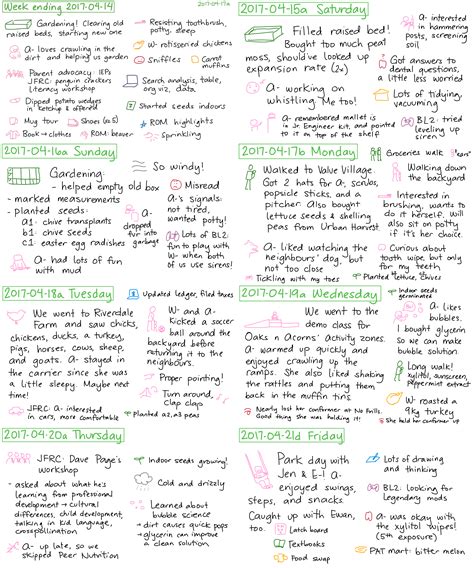 Week ending 2017-04-14
2017-04-17a
Gardening! Clearing old
raised beds, starting new one
A- loves crawling in the
dirt and helping us garden
Parent advocacy, IEPs
JFRC: penguin crackers
Literacy workshop
Dipped potato wedges
in ketchup & offered
Mug tour
Shoes (x5)
Book → clothes
ROM: beaver
Resisting toothbrush,
potty, sleep
W- rotisseried chickens
Sniffles
Carrot
muffins
Search analysis, table,
org viz, data
Started seeds indoors
ROM highlights
Sprinkling
2017-04-15a Saturday
Filled raised bed!
Bought too much peat
moss, should've looked up
expansion rate (2x)
A- working on
whistling. Me too!
A- remembered mallet is
in Jr. Engineer kit, and pointed
to it on top of the shelf
A- interested
in hammering
posts, screening
soil
Got answers to
dental questions,
a little less worried
Lots of tidying,
vacuuming
BL2: tried
leveling up
siren
2017-04-16a Sunday
Gardening:
- helped empty old box
- marked measurements
- planted seeds:
a1: chive transplants
b1: chive seeds
c1: easter egg radishes
A- had lots of
fun with mud
So windy!
Misread
A-'s signals:
not tired,
wanted potty!
A-
dropped
fun into
garbage
Lots of BL2:
fun to play with
W- when both
of us use sirens!
2017-04-17b Monday
Groceries walk
Walked to Value Village.
Got 2 hats for A-, scrubs,
popsicle sticks, and a
pitcher. Also bought
lettuce seeds & shelling
peas from Urban Harvest
A- liked watching the
neighbours' dog, but
not too close
Tickling with my toes
Walking down
the backyard
Interested in
brushing, wants to
do it herself. Will
also sit on potty
if it's her choice.
Curious about
tooth wipe, but only
for my teeth
Planted lettuce, chives
2017-04-18a Tuesday
Updated ledger, filed taxes
We went to Riverdale
Farm and saw chicks,
chickens, ducks, a turkey,
pigs, horses, cows, sheep,
and goats. A- stayed in
the carrier since she was
a little sleepy. Maybe next
time!
JFRC: A- interested
in cars, more comfortable
W- and A-
kicked a soccer
ball around the
backyard before
returning it to the
neighbours.
Proper pointing!
Turn around,
clap claps
Planted a2, a3 peas
2017-04-19a Wednesday
Indoor seeds
germinated
We went to the
demo class for
Oaks n Acorns' Activity zones.
A- warmed up quickly and
enjoyed crawling up the
ramps. She also liked shaking
the rattles and putting them
back in the muffin tins
Nearly lost her confirmer at No Frills.
Good thing she was holding it!
A- likes
bubbles.
I bought glycerin
so we can make
bubble solution.
Long walk!
xylitol, sunscreen,
peppermint extract
W- roasted a
9kg turkey
2017-04-20a Thursday
JFRC: Dave Paige's
workshop
- asked about what he's
learning from professional
development → cultural
differences, child development,
talking in kid language,
crosspollination
A- up late, so we
skipped Peer Nutrition
Indoor seeds growing!
Cold and drizzly
Learned about
bubble science
→ dirt causes quick pops
→ glycerin can improve
a clean solution
2017-04-21d Friday
Park day with
Jen & E-! A-
enjoyed swings,
steps, and snacks.
Caught up with Ewan,
too.
Latch board
Textbooks
Food swap
Lots of drawing
and thinking
BL2: looking for
Legendary mods
A- was okay with
the xylitol wipes!
(5th exposure)
PAT mart: bitter melon